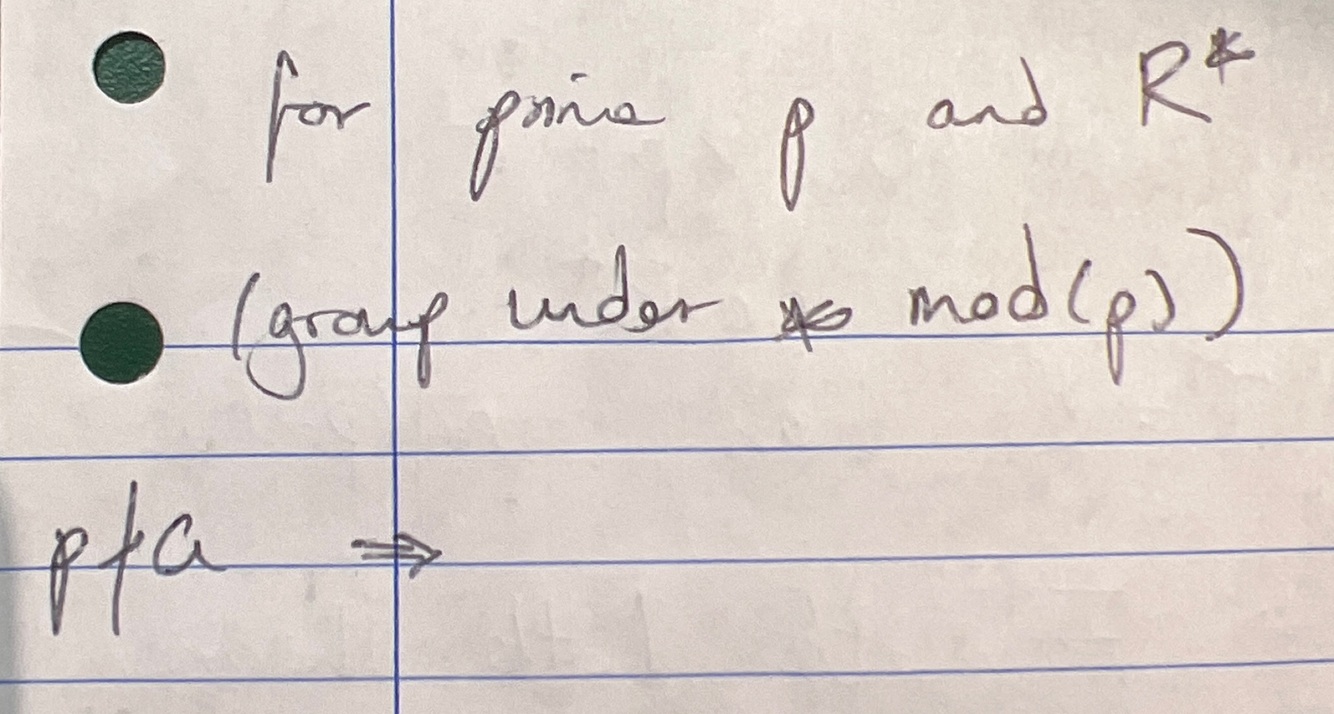 for prime p and R*
(group under * mod(p))
p∤a ⇒